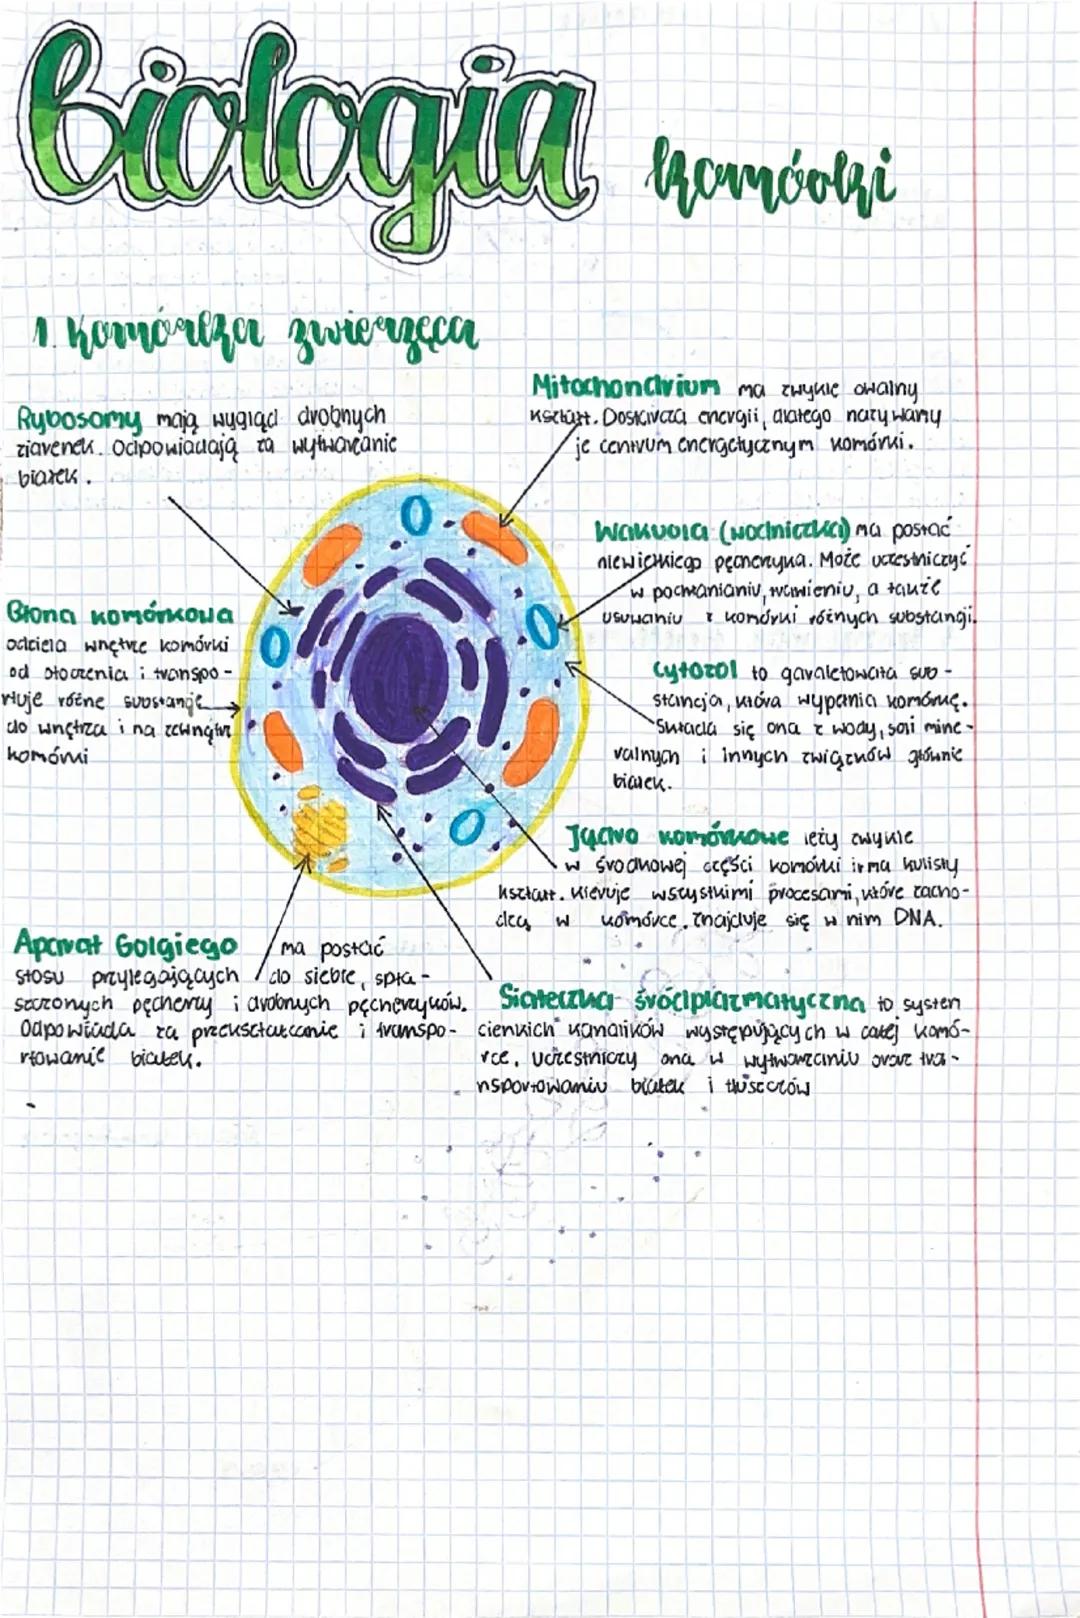 biologia
komórki
1. Komórka zwierzęca
Mitochondrium ma zwykle owalny
kształt. Dostarcza energii, dlatego nazywamy
je centrum energetycznym komórki.
Rybosomy mają wygląd drobnych
ziarenek. Odpowiadają za wytwarzanie
białek.
Wakuola (wodniczka) ma postać
niewielkiego pęcherzyka. Może uczestniczyć
w pochłanianiu, trawieniu, a także
usuwaniu z komórki różnych substancji.
Błona komórkowa
oddziela wnętrze komórki
od otoczenia i transpo-
rtuje różne substancje
do wnętrza i na zewnątrz
komórki
Cytozol to galaretowata sub-
stancja, która wypełnia komórkę.
Składa się ona z wody, soli mine-
ralnych i innych związków głównie
białek.
Jądro komórkowe leży zwykle
w środkowej części komórki i ma kulisty
kształt. Kieruje wszystkimi procesami, które zacho-
dzą w komórce. Znajduje się w nim DNA.
Aparat Golgiego ma postać
stosu przylegających do siebie, spła-
szczonych pęcherzy i drobnych pęcherzyków.
Odpowiada za przekształcanie i transpo-
rtowanie białek.
Siateczka śródplazmatyczna to system
cienkich kanalików występujących w całej komó-
rce. Uczestniczy ona w wytwarzaniu oraz tra-
nsportowaniu białek i tłuszczów